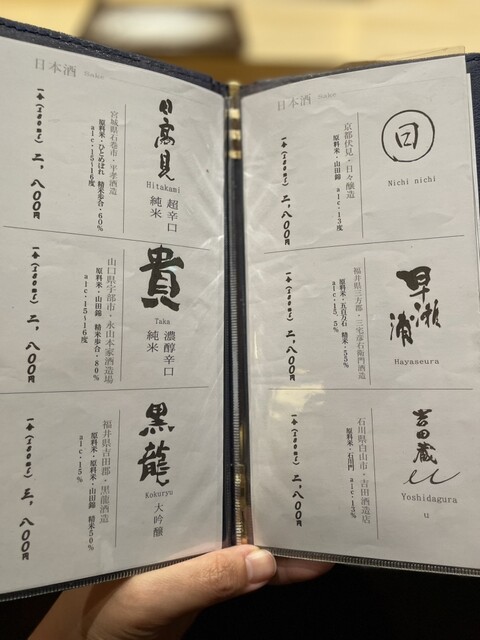 日本酒 Sake
日高見
Hitakami
超辛口
純米
宮城県石巻市・平孝酒造
原料米・ひとめぼれ 精米歩合・60%
alc・15~16度
一合(180ml) 二,八00円
貴
Taka
濃醇辛口
純米
山口県宇部市・永山本家酒造場
原料米・山田錦 精米歩合・80%
alc・15~16度
一合(180ml) 二,八00円
黒龍
Kokuryu
大吟醸
福井県吉田郡・黒龍酒造
原料米・原料米・山田錦 精米50%
alc・15%
一合(180ml) 三,八00円
日本酒 Sake
日
Nichi nichi
京都伏見・日々醸造
原料米・山田錦 alc・13度
一合(180ml) 二,八00円
早瀬浦
Hayaseura
福井県三方郡・三宅彦右衛門酒造
原料米・五百万石 精米・55%
alc・15.5%
一合(180ml) 二,八00円
吉田蔵u
Yoshidagura
u
石川県白山市・吉田酒造店
原料米・石川門 alc・13%
一合(180ml) 二,八00円